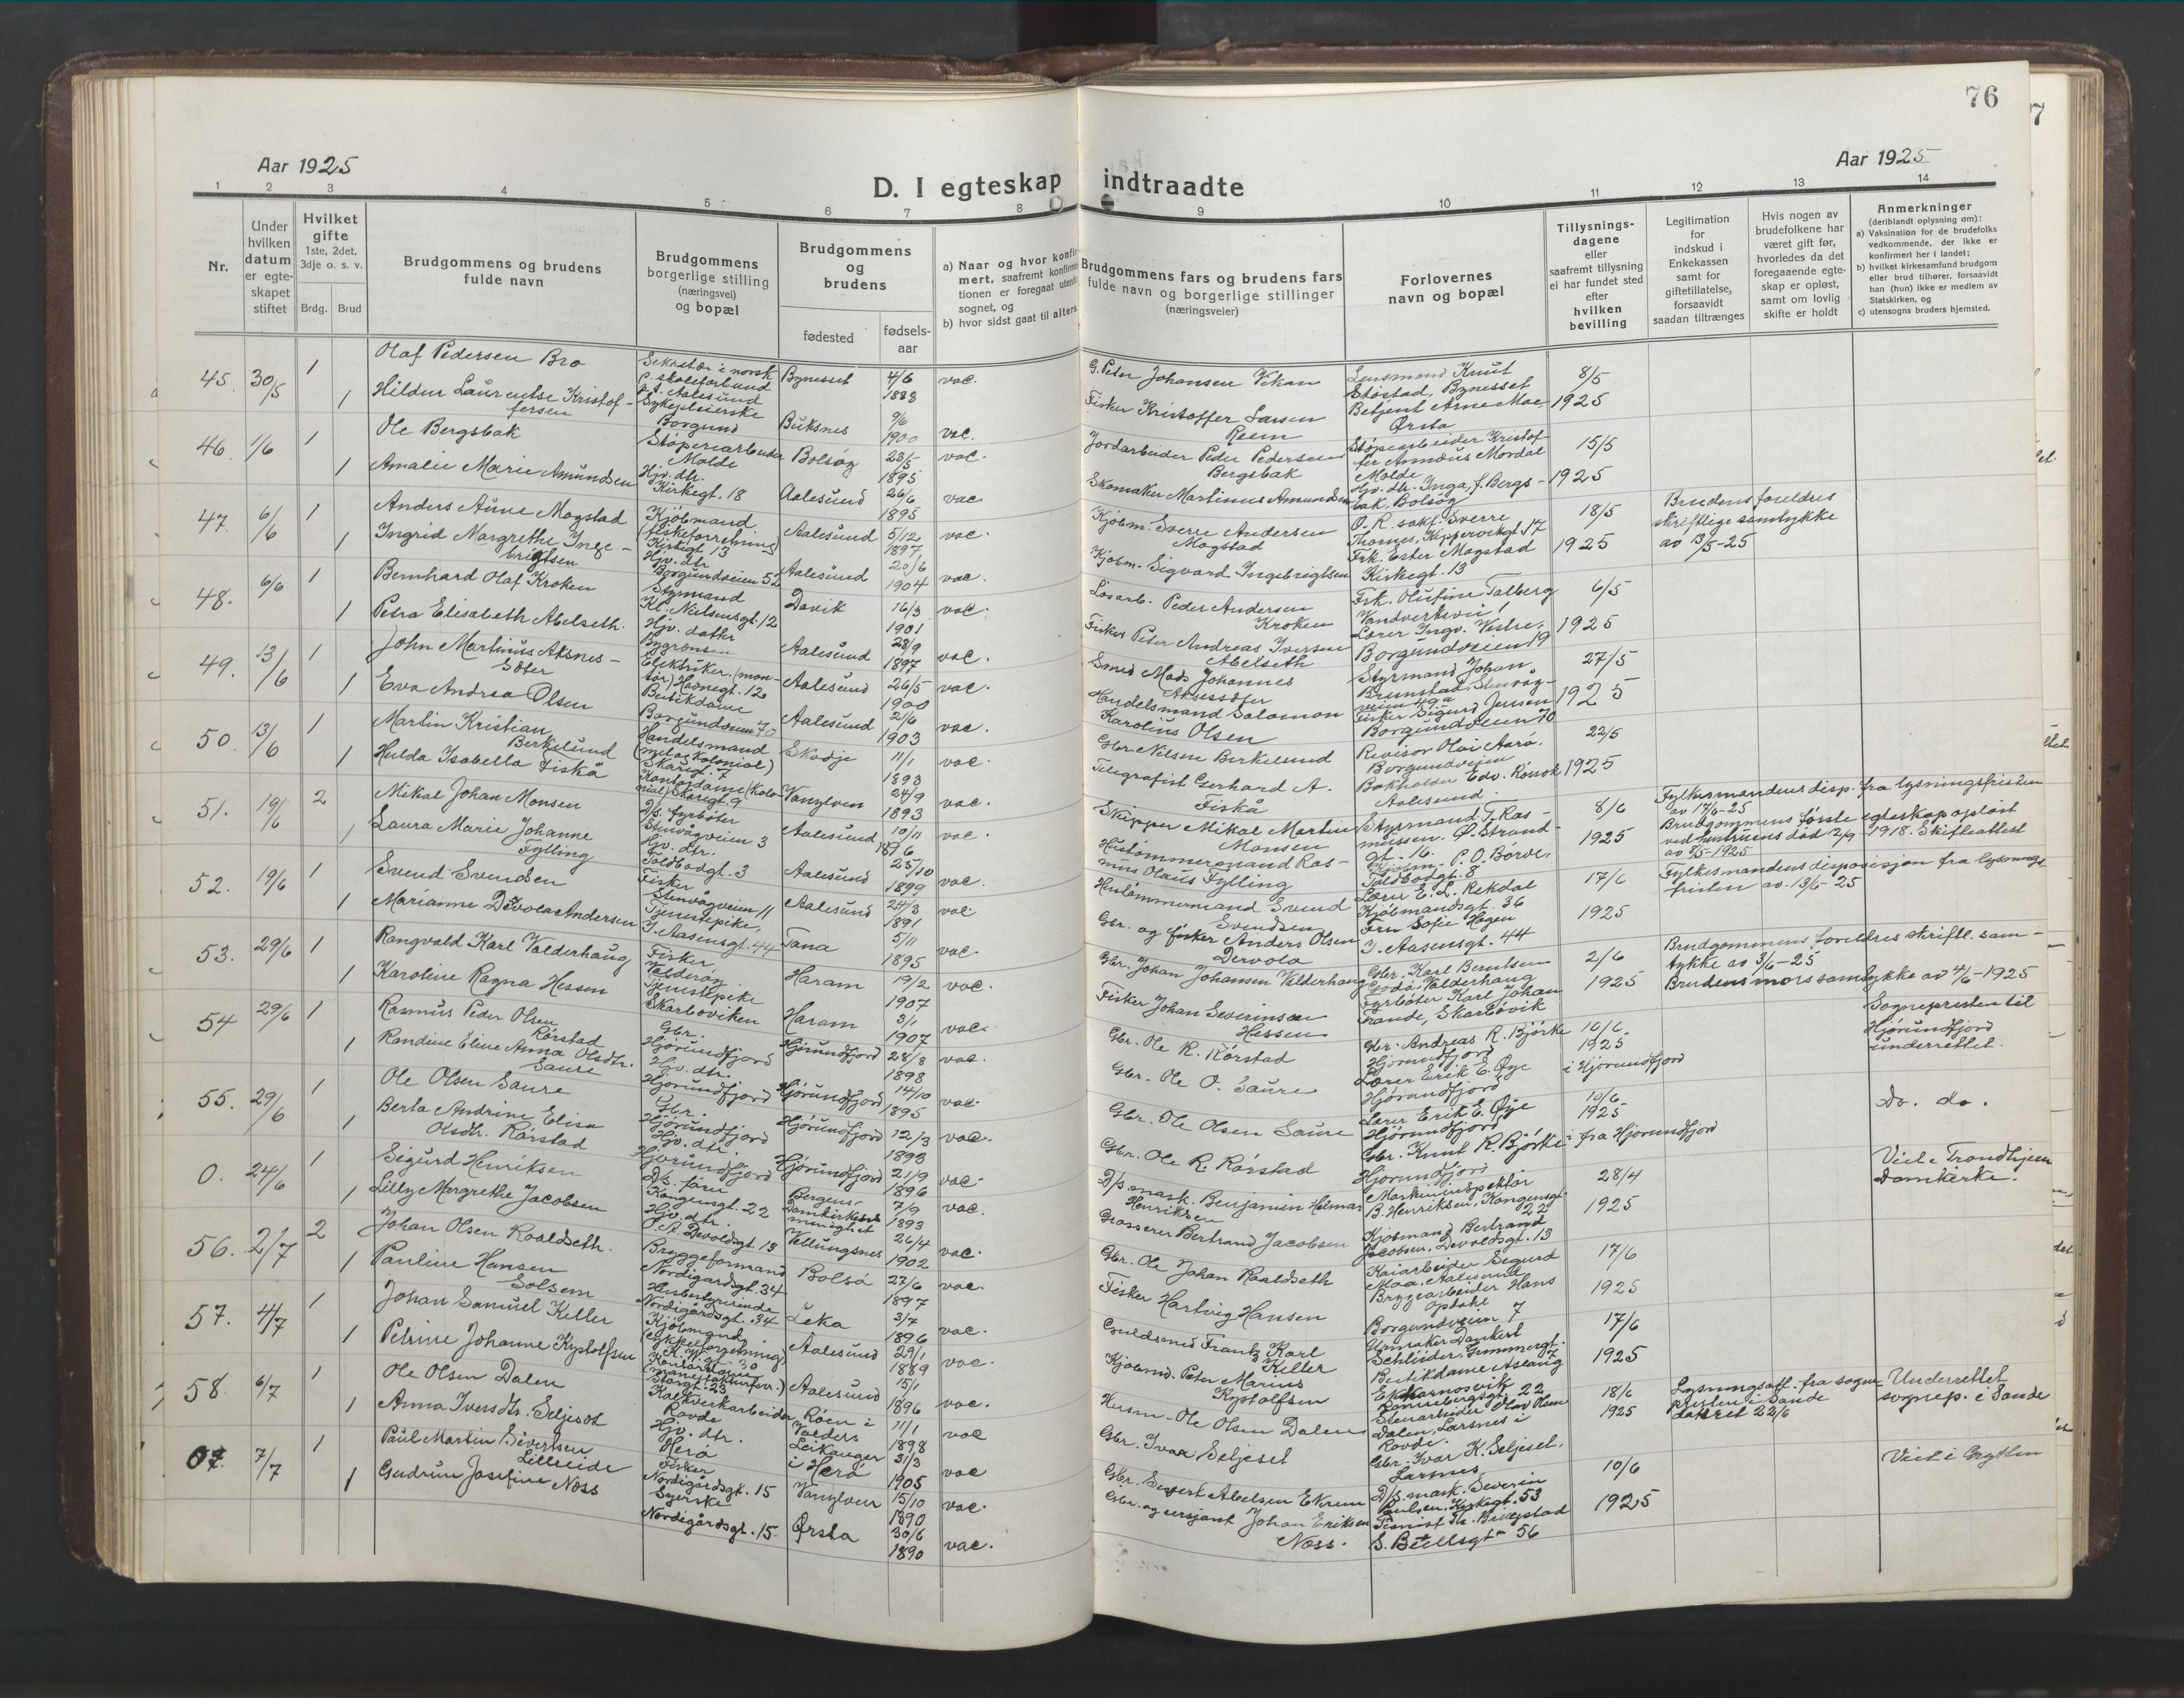 76
Aar 1925
Aar 1925
D. I egteskap indtraadte
1 2 3 4 5 6 7 8 9 10 11 12 13 14
Nr.
Under hvilken datum er egteskapet stiftet
Hvilket gifte
1ste, 2det, 3dje o. s. v.
Brdg. Brud
Brudgommens og brudens fulde navn
Brudgommens borgerlige stilling (næringsvei) og bopæl
Brudgommens og brudens
fødested
fødsels-aar
a) Naar og hvor konfir
mert, saafremt konfirma
tionen er foregaat utenfor
sognet, og
b) hvor sidst gaat til alters
Brudgommens fars og brudens fars
fulde navn og borgerlige stillinger
(næringsveier)
Forlovernes
navn og bopæl
Tillysnings-
dagene
eller
saafremt tillysning
ei har fundet sted
efter
hvilken
bevilling
Legitimation
for
indskud i
Enkekassen
samt for
giftetillatelse,
forsaavidt
saadan tiltrænges
Hvis nogen av
brudefolkene har
været gift før,
hvorledes da det
foregaaende egte-
skap er opløst,
samt om lovlig
skifte er holdt
Anmerkninger
(deriblandt oplysning om):
a) Vaksination for de brudefolks
vedkommende, der ikke er
konfirmert her i landet;
b) hvilket kirkesamfund brudgom
eller brud tilhører, forsaavidt
han (hun) ikke er medlem av
Statskirken, og
c) utensogns bruders hjemsted.
45. 30/5 1 Olaf Pedersen Bro Sekretær i norsk p. skoleforbund Aalesund Bynesset 4/6 1888 vac. G. Peder Johansen Vikan Lensmand Knut Stöstad, Bynesset 8/5
1 Hildur Laurentse Kristoffersen Sykepleierske Borgund Buksnes 9/6 1900 vac. Fisker Kristoffer Larsen Reem Betjent Arne Moe Ørsta 1925
46. 1/6 1 Ole Bergsbak Støperiarbeider Molde Bolsøy 23/5 1895 vac. Jordarbeider Peder Pedersen Bergsbak Støpearbeider Kristoffer Mordal Molde 15/5
1 Amalie Marie Amundsen Hjv. dtr. Kirkegt. 18 Aalesund 26/6 1895 vac. Skomaker Martinus Amundsen Hjv. dtr. Inga f. Bergsbak, Bolsøy 1925
47. 6/6 1 Anders Aune Mogstad Kjøbmand (fiskeforretning) Kirkegt. 13 Aalesund 5/12 1897 vac. Kjøbm. Sverre Andersen Mogstad O. R. sakf. Sverre Thomes, Kippervikgt. 17 18/5
Brudens foreldres skriftlige samtykke av 13/5-25
1 Ingrid Margrethe Ingebrigtsen Hjv. dtr Borgundveien 52 Aalesund 20/6 1904 vac. Kjøbm. Sigvard Ingebrigtsen Frk. Ester Mogstad Kirkegt. 13 1925
48. 6/6 1 Bernhard Olaf Kroken Styrmand Kl. Nielsensgt. 12 Davik 16/3 1901 vac. Løsarb. Peder Andersen Kroken Frk. Olufine Talberg 6/5
1 Petra Elisabeth Abelseth Hjv. datter Aalesund 28/9 1897 vac. Fisker Peter Andreas Iversen Abelseth Lærer Ingv. Vestre, Borgundveien 19 1925
49. 13/6 1 John Martinus Aksnes- Elektriker (montør) Havnegt. 12 Aalesund 26/5 1900 vac. Smed Mads Johannes Styrmand Johan 27/5
1 Eva Andrea Olsen Butikdame Borgundveien 70 Aalesund 21/6 1903 vac. Handelsmand Solomon Karolius Olsen Fisker Sigurd Jensen Borgundveien 70 1925
50. 13/6 1 Martin Kristian Berkelund Handelsmand (melog kolonial) Skaregt. 7 Skodje 11/1 1893 vac. Gbr. Nilsen Berkelund Revisor Olai Aarø, Borgundveien 22/5
1 Hulda Isabella Fiskå Kontordame (kolonial) Skaregt 9 Vanylven 24/9 1893 vac. Telegrafist Gerhard A. Fiskå Bokholder Edv. Rønsok Aalesund 1925
51. 19/6 2 Mikal Johan Monsen D/s. fyrbøter Stenvågveien 3 Aalesund 10/11 1896 vac. Skipper Mikal Martin Monsen Styrmand T. Rasmussen. Ø. Strandgt. 16 8/6
Fylkesmandens disp. fra lysningsfristen av 17/6-25
Brudgommens første egteskap opløst ved hustruens død 2/9-1918. Skifteattest av 8/5-1925
1 Laura Marie Johanne Fylling Hjv. dtr. Toldbodgt. 3 Aalesund 25/10 1899 vac. Hustømmermand Rasmus Olaus Fylling Kjøbm. P. O. Børve, Toldbodgt. 8 1925
52. 19/6 1 Svend Svendsen Fisker Stenvågveien 11 Aalesund 24/3 1891 vac. Hustømmermand Svend Svendsen Lærer E. L. Rekdal Kjøbmandsgt. 36 17/6
Fylkesmandens disposisjon fra lysningsfristen av 13/6-25
1 Marianne Devola Andersen Tjenestepike, I. Aasensgt. 44 Tana 5/11 1895 vac. Gbr. og fisker Anders Olsen Devola Fru Sofie Hagen I. Aasensgt. 44 1925
53. 29/6 1 Rangvald Karl Valderhaug Fisker Valderøy Haram 19/2 1907 vac. Gbr. Johan Johansen Valderhaug Gbr. Karl Berntsen Valderhaug 2/6
Brudgommens foreldres skriftl. samtykke av 3/6-25
Brudens mors samtykke av 4/6-1925
1 Karoline Ragna Hessen Tjenestepike Skarboviken Haram 3/1 1907 vac. Fisker Johan Severinsen Hessen Fyrbøter Karl Johan Frande, Skarbøvik 1925
54 29/6 1 Rasmus Peder Olsen Rørstad Gbr. Hjørundfjord Hjørundfjord 28/8 1898 vac. Gbr. Ole R. Rørstad Gbr. Andreas R. Bjørke Hjørundfjord 10/6. 1925
Sogneprestentil Hjørundfjord underrettet.
1 Randine Eline Anna Olsdtr. Saure Hjv. dtr. Hjørundfjord Hjørundfjord 14/10 1895 vac. Gbr. Ole O. Saure Lærer Erik E. Øye Hjørundfjord i Hjørundfjord
55. 29/6 1 Ole Olsen Saure Gbr. Hjørundfjord Hjørundfjord 12/3 1893 vac. Gbr. Ole Olsen Saure Lærer Erik E. Øye Hjørundfjord 10/6 1925 Do. do.
1 Berta Andrine Elisa Olsdtr. Rørstad Hjv. dtr. Hjørundfjord Hjørundfjord 21/9 1896 vac. Gbr. Ole R. Rørstad Gbr. Knut R. Bjørke Hjørundfjord fra Hjørundfjord
0. 24/6 1 Sigurd Henriksen D/s. fører Kongensgt. 22 Bergens Domkirkes menighet 7/9 1893 vac. D/s mask. Benjamin Helmar Henriksen Maskininspektør B. Henriksen, Kongensgt. 22 28/4
Viet i Trondhjem Domkirke.
1 Lilly Margrethe Jacobsen Hjv. dtr. O. A. Devoldsgt. 13 Vellungsnes 26/4 1902 vac. Grosserer Bertrand Jacobsen Kjøbmand Bertrand Jacobsen, Devoldsgt. 13 1925
56. 2/7 2 Johan Olsen Roaldseth. Bryggeformand Nordigardsgt. 34 Bolsø 27/6 1897 vac. Gbr. Ole Johan Roaldseth Kaiarbeider Sigurd Moa, Aalesund 17/6
1 Pauline Hansen Solsem Husbestyrerinde Nordigårdsgt. 34 Leka 3/7 1896 vac. Fisker Hartvig Hansen Bryggearbeider Hans Opdahl Borgundveien 7 1925
57. 4/7 1 Johan Samuel Keller Kjøbmand (cykkelforretning) Aalesund 29/1 1889 vac. Guldsmed Frantz Karl Keller Urmaker Dankert Schleider, 17/6
1 Petrine Johanne Kystolfsen Kontordame Storgt. 23 Aalesund 15/1 1896 vac. Kjøbmd. Peter Marius Kystolfsen Butikdame Aslaug Ekornesvik Rønnebergsgt. 22 1925
58. 6/7 1 Ole Olsen Dalen Kalkverkarbeider Rovde Røen i Valders 11/1 1898 vac Husm. Ole Olsen Dalen Stenarbeider Olav Dalen, Larsnes i Rovde. 18/6 1925
Lysningsatt. fra sognepresten i Sande datert 22/6
Underrettet sognep. i Sande
1 Anna Iversdtr. Seljeset Hjv. dtr. Herø Leikanger i Herø 31/3 1905 vac Gbr. Ivar Seljeset Gbr. Ivar K. Seljeset, Larsnes
0 7/7 1 Paul Martin Sivertsen Lillreide Fisker Nordigårdsgt. 15 Vanylven 15/10 1890 vac. Gbr. Sivert Abelsen Ekrem D/s. mask. Severin Paulsen, Kirkegt. 53 10/6
Viet i Grytten
1 Gudrun Josefine Noss Syerske Nordigårdsgt. 15 Ørsta 30/6 1890 vac. Gbr. og sersjant Johan Eriksen Noss. S. Bullsgt 56 1925